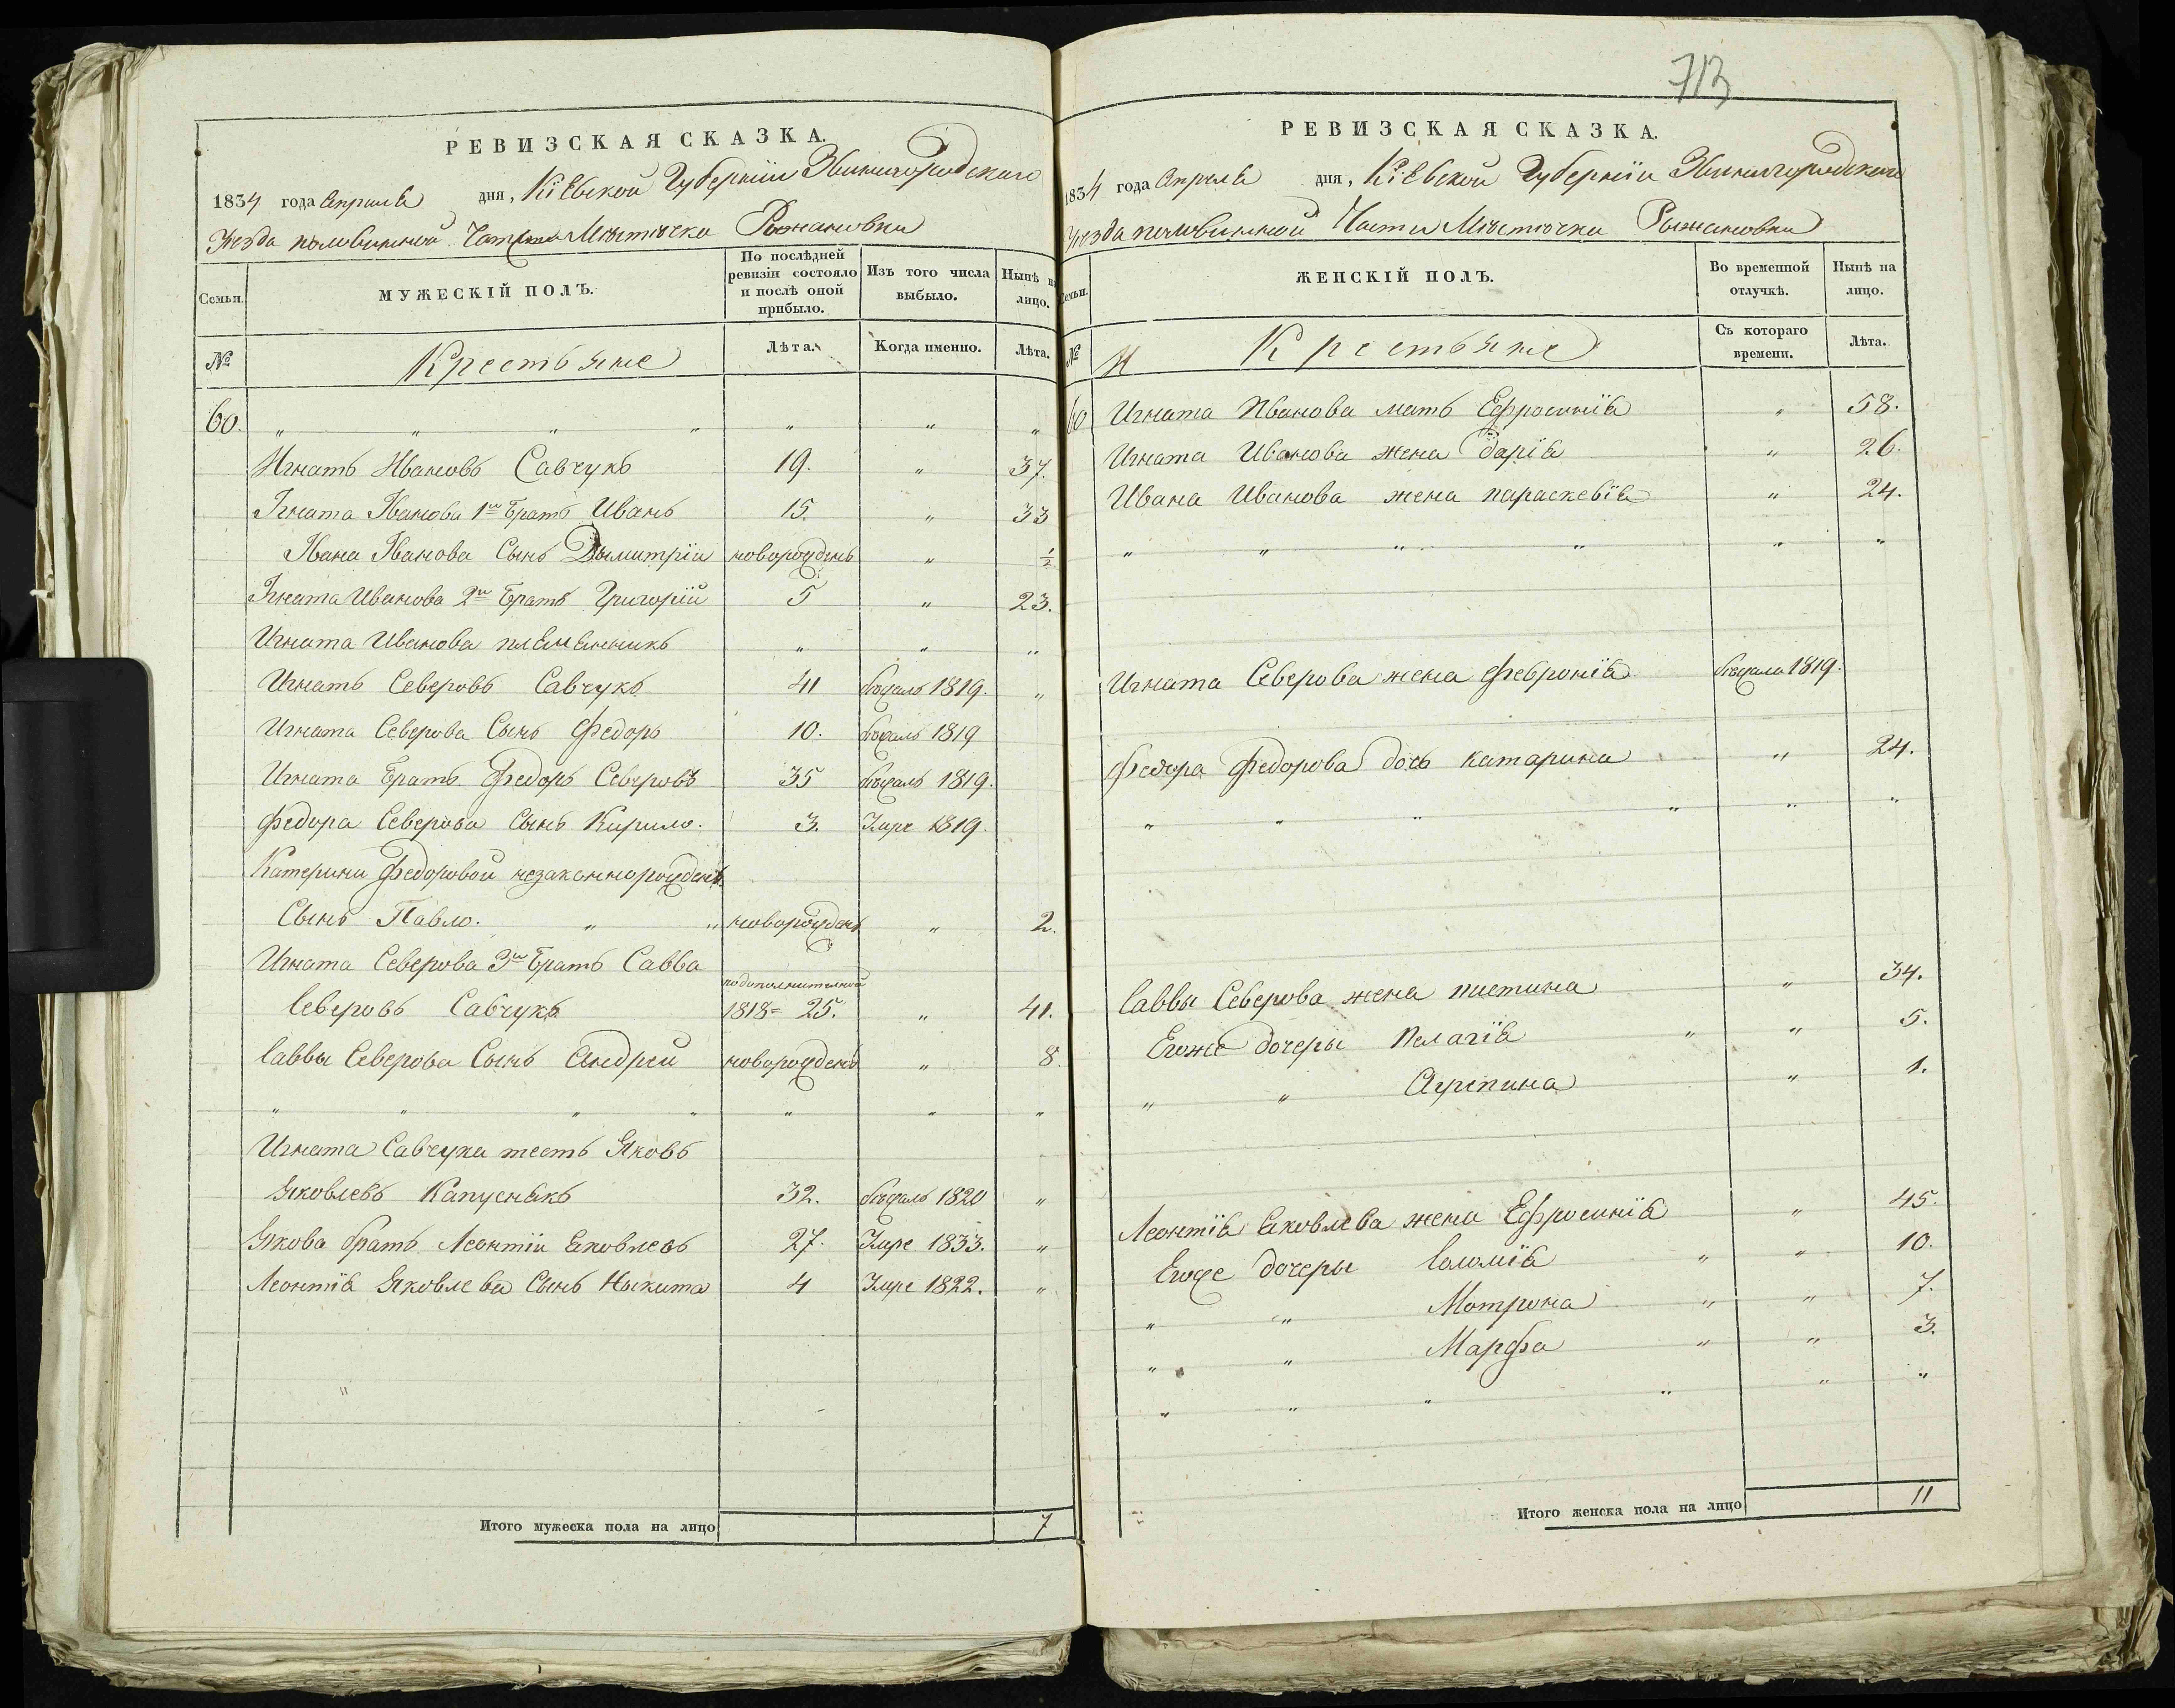 713
РЕВИЗСКАЯ СКАЗКА.
1834 года Апреля дня, Кіевской Губерніи Звинигородскаго
Уезда половинной Части Мѣстѣчка Рыжановки
Семьи. МУЖЕСКІЙ ПОЛЪ. По послѣдней ревизіи состояло и послѣ оной прибыло. Изъ того числа выбыло. Нынѣ на лицо.
№ Крестьяне Лѣта. Когда именно. Лѣта.
60. " " " " " " "
Игнатъ Ивановъ Савчукъ 19. " 37.
Игната Иванова 1й Братъ Иванъ 15. " 33
Ивана Иванова Сынъ Дымитрій новорожденъ " ½
Игната Иванова 2й Братъ Григорій 5 " 23.
Игната Иванова племенникъ " " "
Игнатъ Северовъ Савчукъ 41 бежалъ 1819. "
Игната Северова Сынъ Федоръ 10. бежалъ 1819
Игната Братъ Федоръ Северовъ 35 бежалъ 1819.
Федора Северова Сынъ Кирило. 3. Умре 1819.
Катерины Федоровой незаконнорожденъ
Сынъ Павло. " " новорожденъ " 2.
Игната Северова 3й Братъ Савва
Северовъ Савчукъ подополнителной 1818= 25. " 41.
Саввы Северова Сынъ Андрей новорожденъ " 8.
" " " " " " "
Игната Савчука тесть Яковъ
Яковлевъ Капуснякъ 32. бежалъ 1820 "
Якова братъ Леонтій Яковлевъ 27. Умре 1833. "
Леонтія Яковлева Сынъ Никита 4 Умре 1822. "
"
Итого мужеска пола на лицо 7
РЕВИЗСКАЯ СКАЗКА.
1834 года Апреля дня, Кіевской Губерніи Звинигородскаго
Уезда половинной Части Мѣстѣчка Рыжановки
Семьи. ЖЕНСКІЙ ПОЛЪ. Во временной отлучкѣ. Нынѣ на лицо.
№ Крестьяне Съ котораго времени. Лѣта.
60 Игната Иванова мать Ефросинія " 58.
Игната Иванова жена Дарія " 26.
Ивана Иванова жена параскевія " 24.
" " " " " "
Игната Северова жена Февронія бежала 1819.
Федора Федорова дочь катарина " 24.
" " " " " "
Саввы Северова жена пистина " 34.
Егоже дочеры Пелагія " " 5.
" " Агрепина " 1.
Леонтія Яковлева жена Ефросинія " 45.
Егоже дочеры Саломія " " 10.
" " Мотрона " " 7.
" " Марфа " " 3.
" " " " " "
Итого женска пола на лицо 11